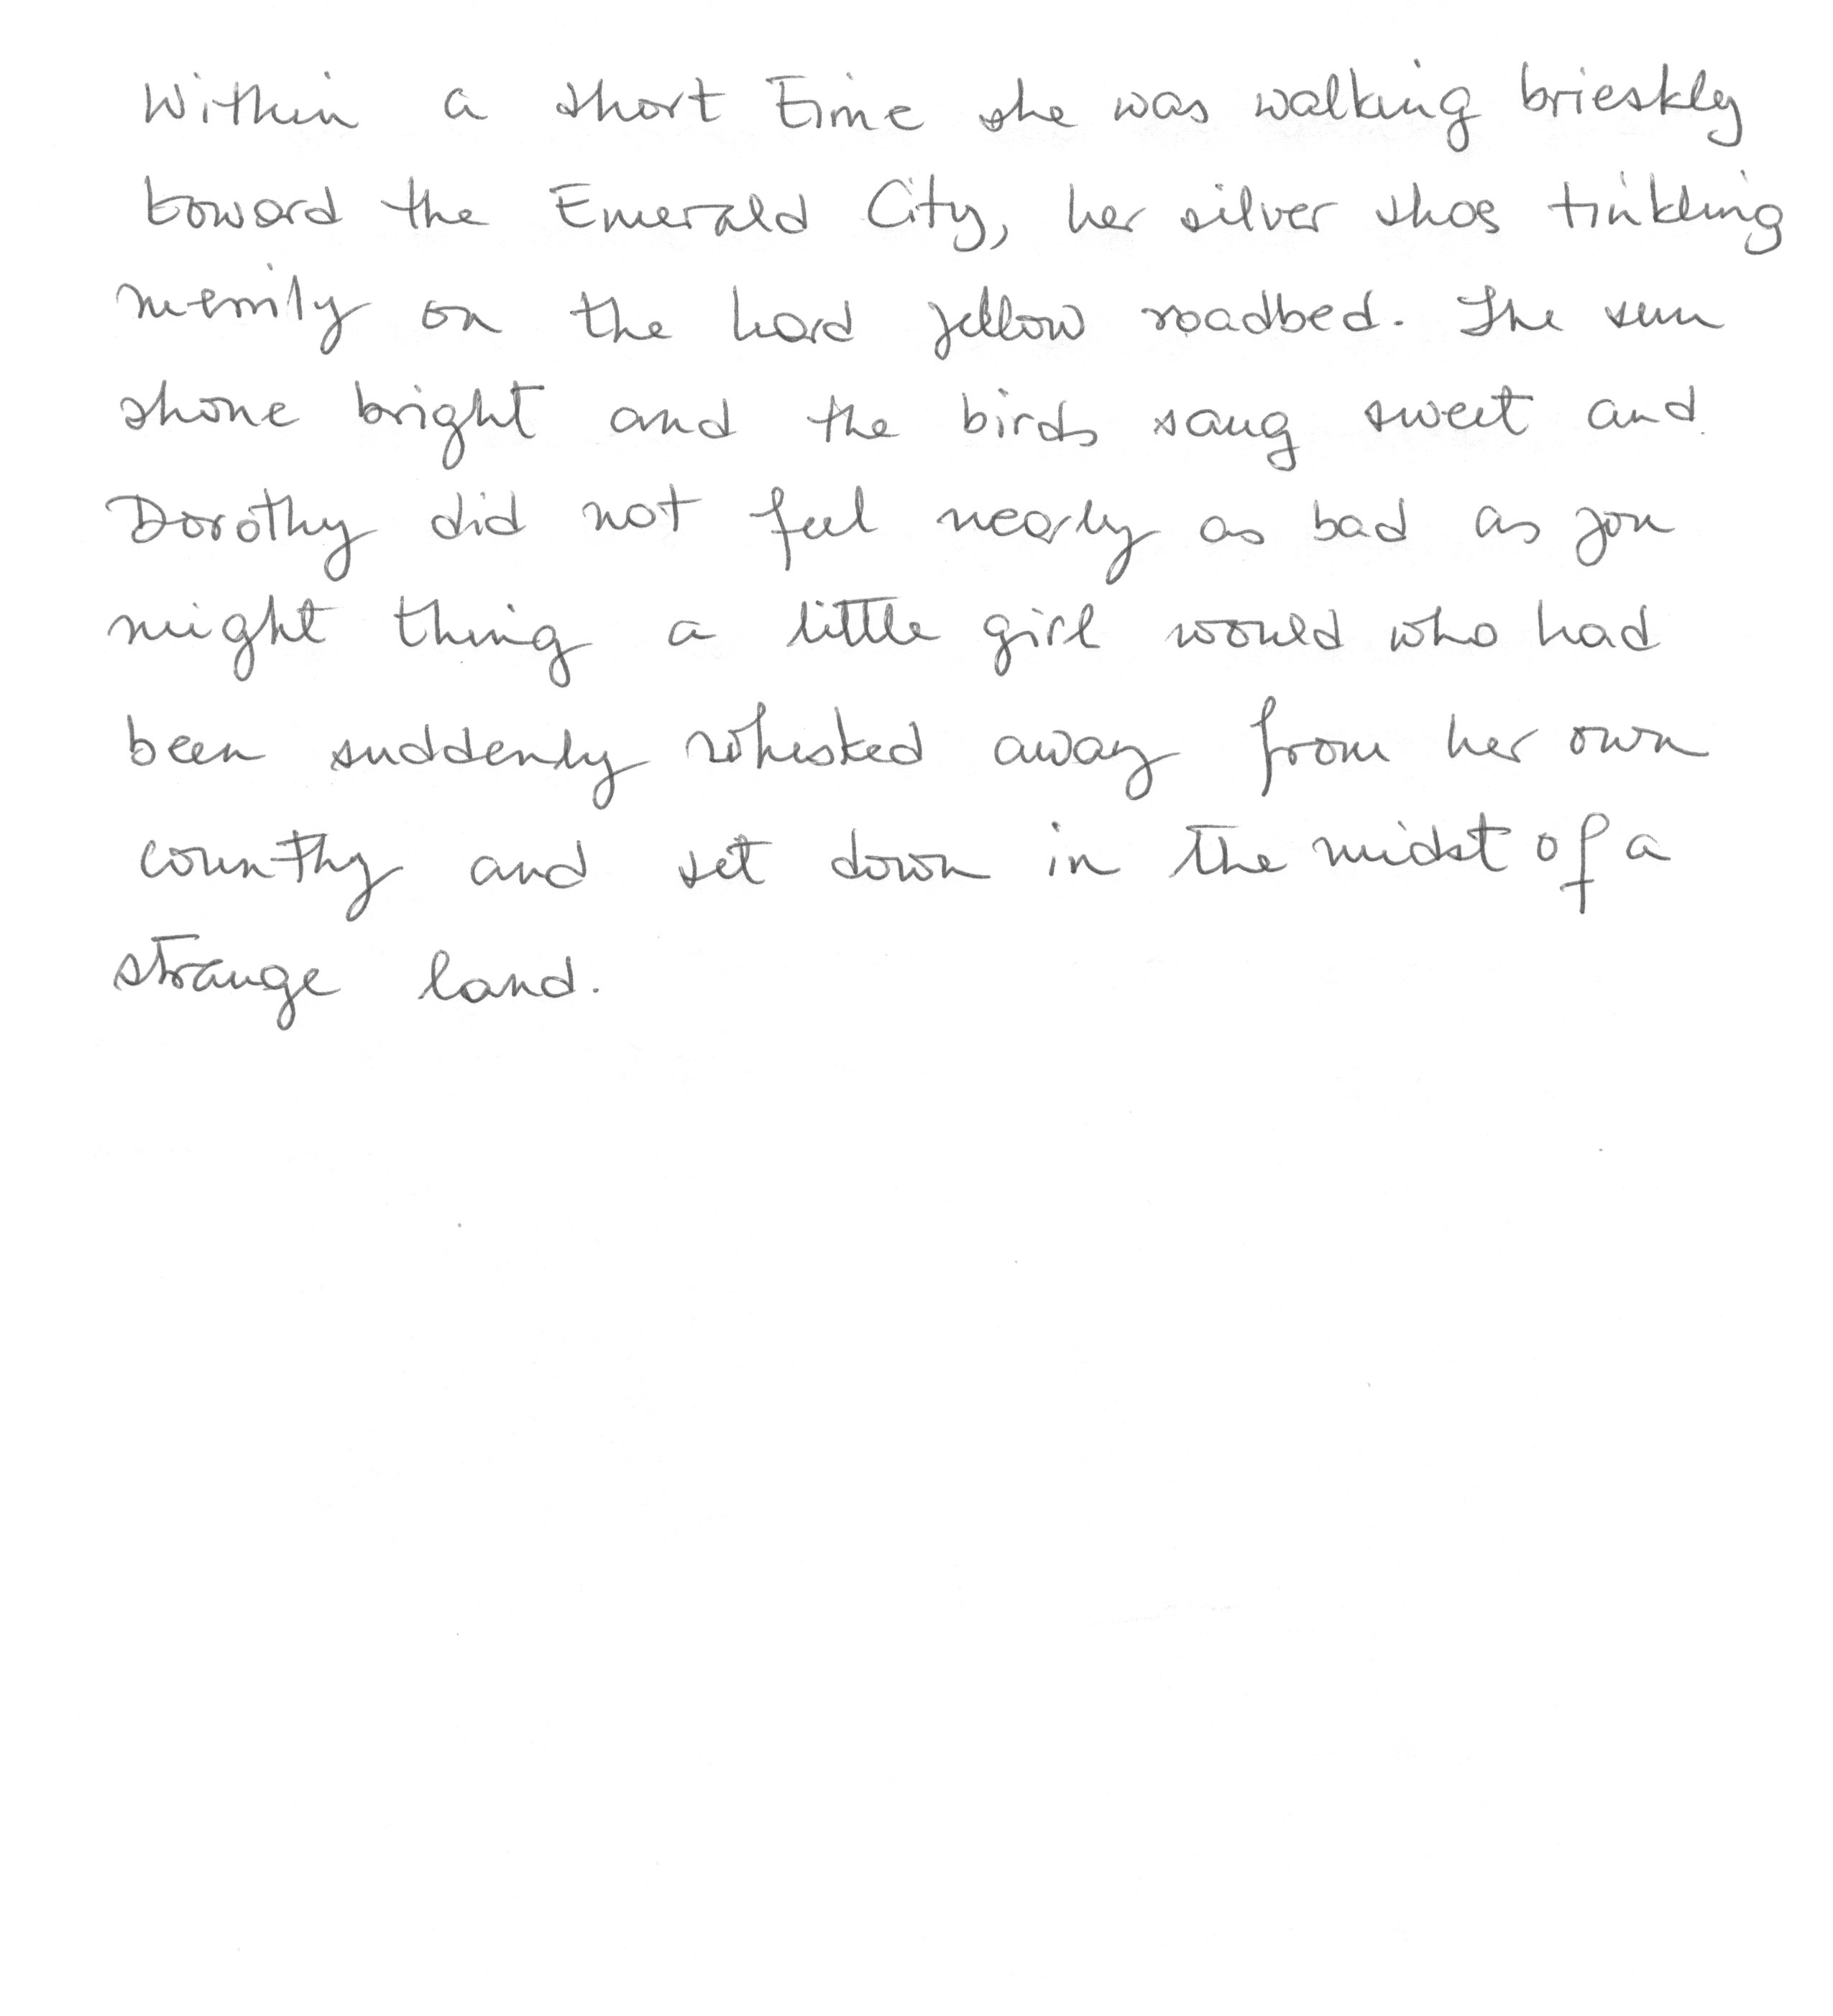 Within a short time she was walking brieskly
toward the Emerald City, her silver shos tinkling
merrily on the hard yellow roadbed. The sun
shone bright and the birds sang sweet and
Dorothy did not feel nearly as bad as you
might thing a little girl would who had
been suddenly whisked away from her own
counthy and set down in the midst of a
strange land.